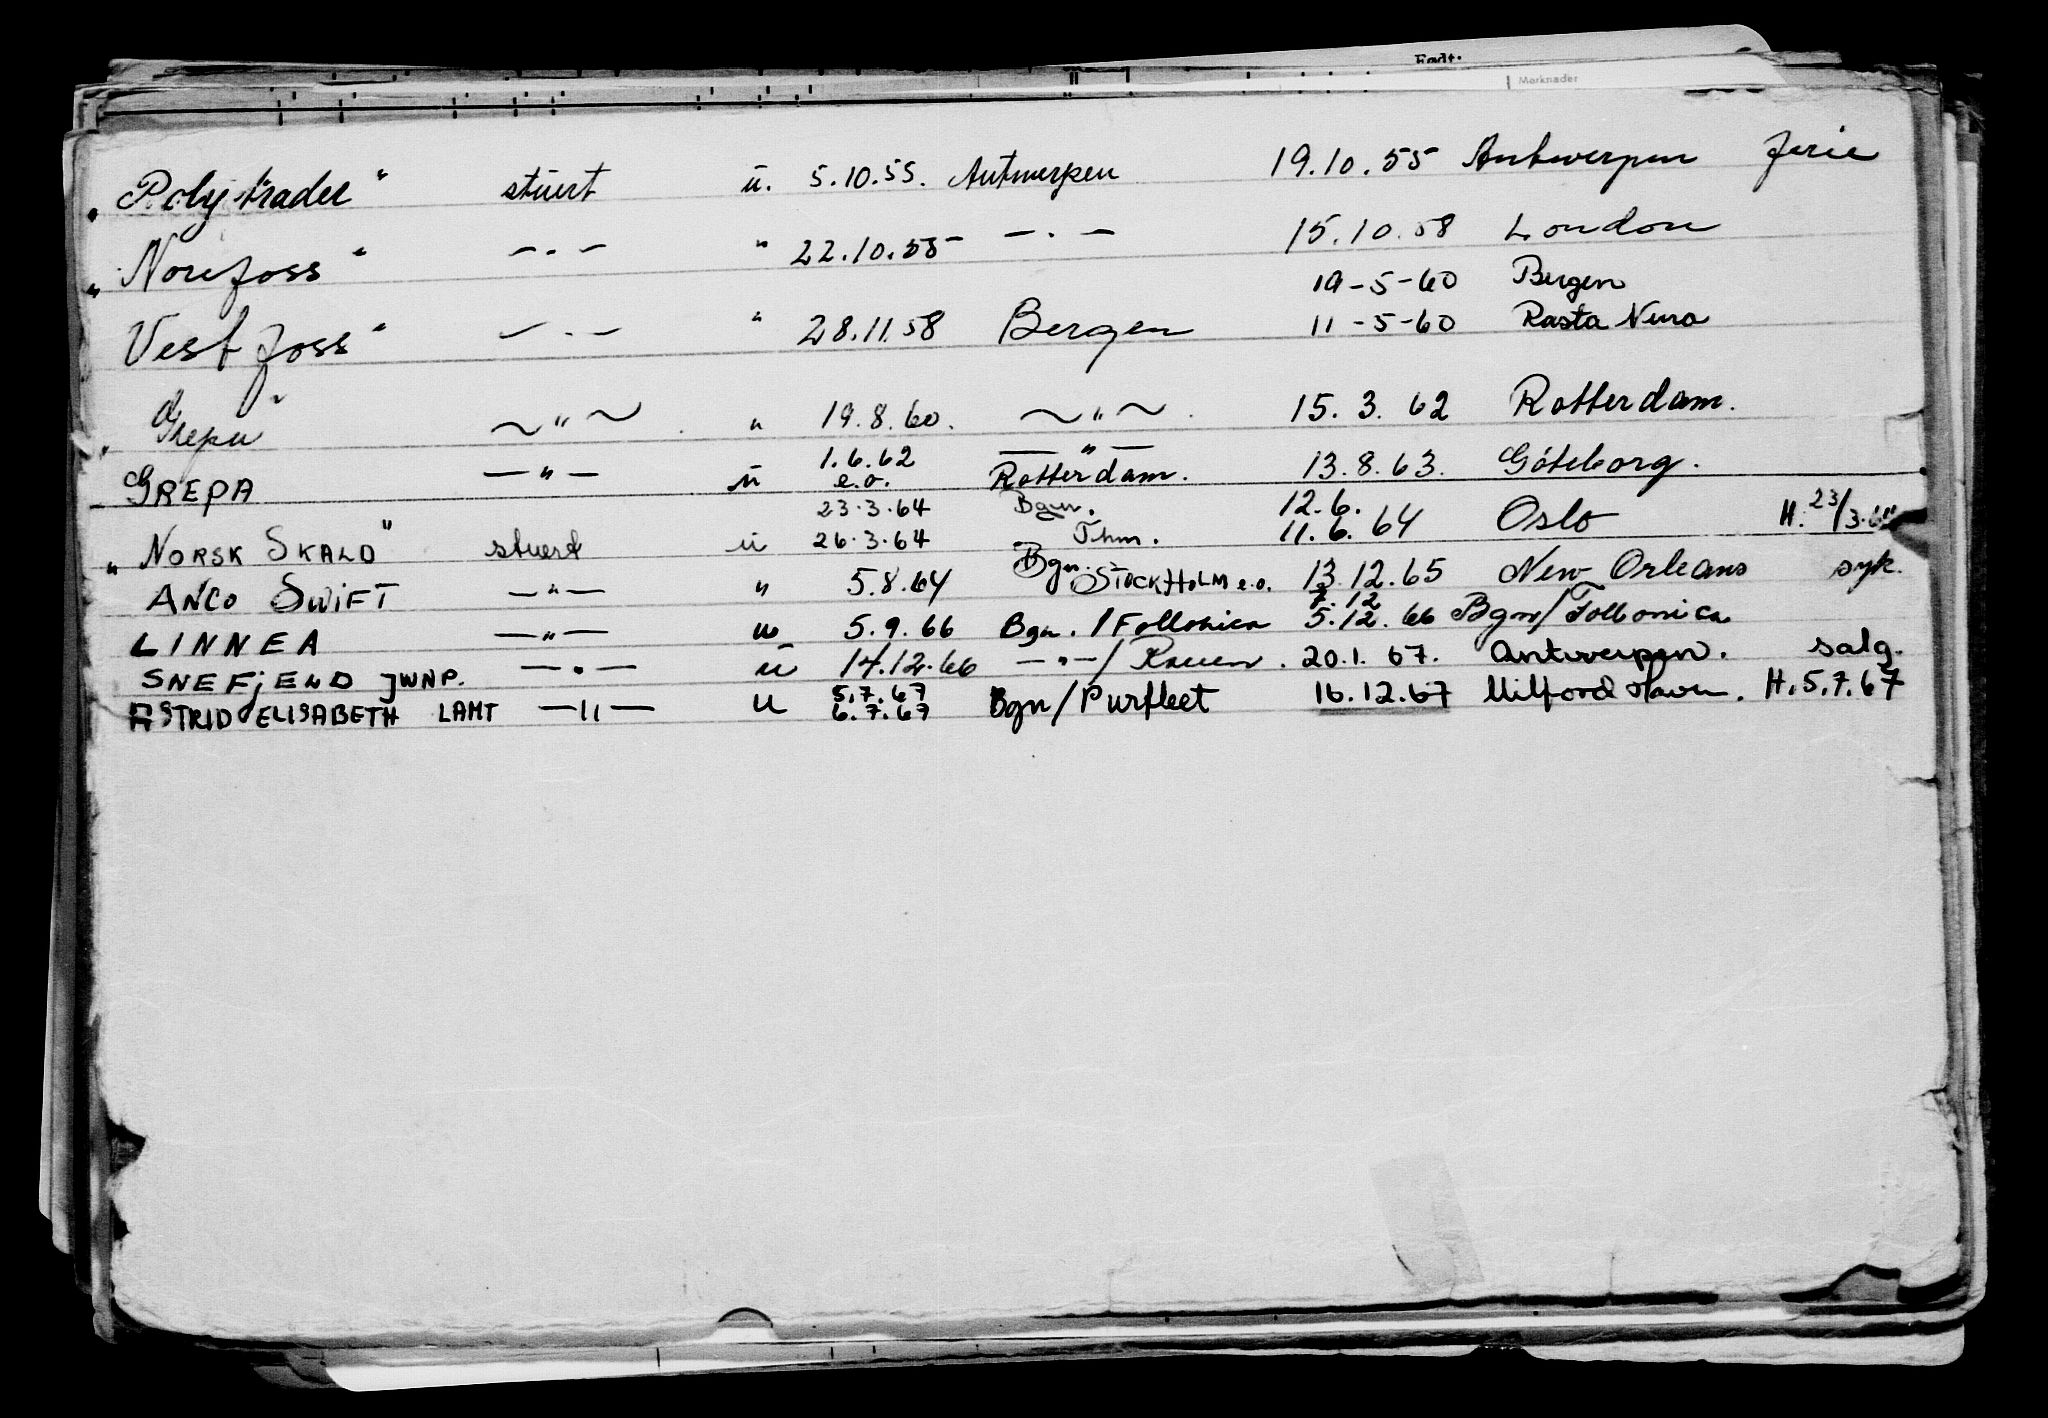 Født:
Merknader
"Polytrader" stuert u. 5.10.55. Antwerpen 19.10.55 Antwerpen ferie
"Norefoss" — . — " 22.10.55 — . — 15.10.58 London
19-5-60 Bergen
Vestfoss" — . — " 28.11.58 Bergen 11-5-60 Rasta Nura
"Grepa" ~ " ~ " 19.8.60. ~ " ~ . 15.3.62 Rotterdam.
1.6.62 — " —
GREPA — " — u e.o. Rotterdam. 13.8.63. Göteborg.
23.3.64 Bgn. 12.6.
"NORSK SKALD" stuert u 26.3.64 Thm. 11.6.64 Oslo H. 23/3.64
ANCO SWIFT — " — " 5.8.64 Bgn. STOCKHOLM e.o. 13.12.65 New Orleans syk.
7.12
LINNEA — " — u 5.9.66 Bgn. / Follonica 5.12.66 Bgn/Follonica
SNEFJELD JWNP. — " — u 14.12.66 — " — / Rouen. 20.1.67. Antwerpen. salg.
5.7.67
ASTRID ELISABETH LAMT — " — u 6.7.67 Bgn/Purfleet 16.12.67 Milford Haven. H.5.7.67